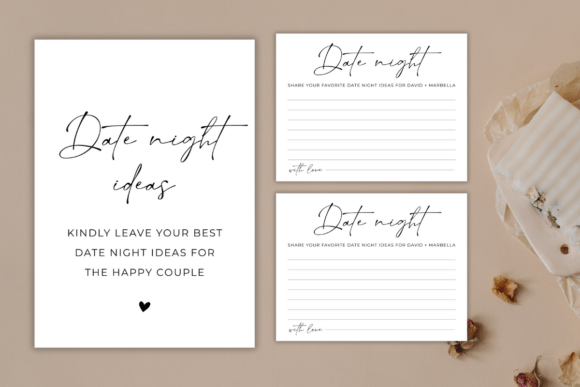 Date night
ideas
KINDLY LEAVE YOUR BEST
DATE NIGHT IDEAS FOR
THE HAPPY COUPLE
Date night
SHARE YOUR FAVORITE DATE NIGHT IDEAS FOR DAVID + MARBELLA
with love
Date night
SHARE YOUR FAVORITE DATE NIGHT IDEAS FOR DAVID + MARBELLA
with love